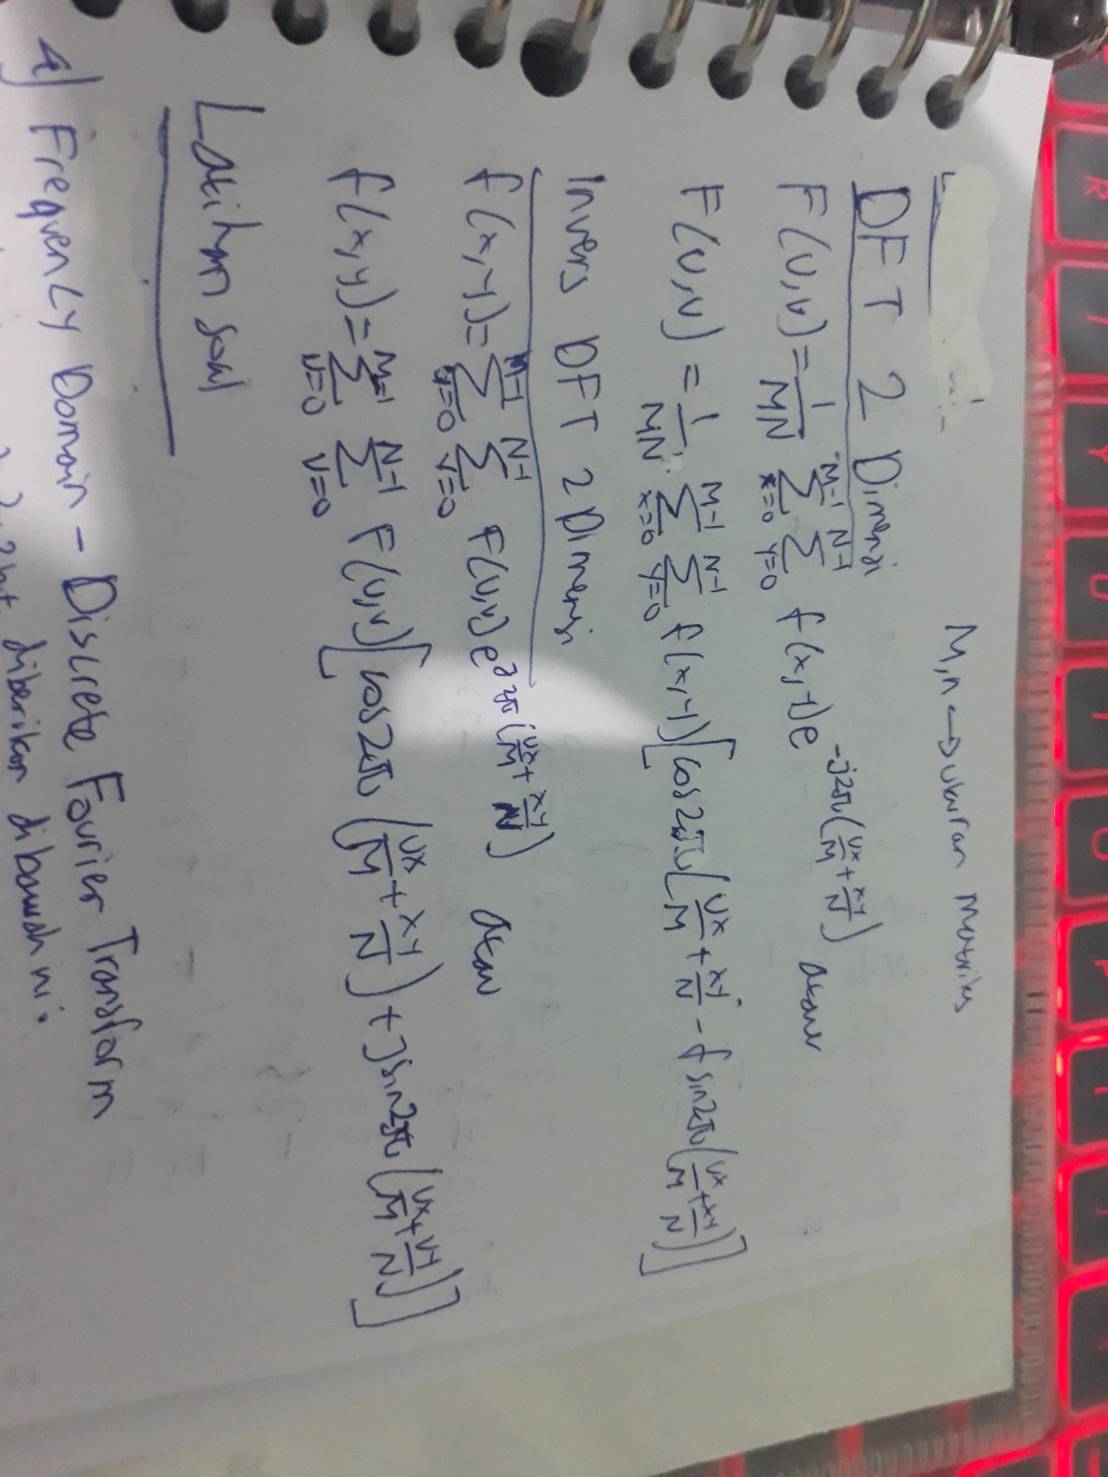 R T Y U I O P
M,n → ukuran Matriks
DFT 2 Dimensi
F(U,V)=1/MN M-1∑x=0 N-1∑y=0 f(x,y)e^-j2π(Ux/M+xy/N) atau
F(U,V) = 1/MN. M-1∑x=0 N-1∑y=0 f(x,y)[cos2π(Ux/M+xy/N - f sin2π(Ux/M+xy/N)]
Invers DFT 2 Dimensi
f(x,y)=M-1∑u=0 N-1∑v=0 F(U,V)e^j2π(Ux/M+xy/N) atau
f(x,y)=M-1∑U=0 N-1∑V=0 F(U,V)[cos2π (UX/M+XY/N)+jsin2π (UX/M+VY/N)]
Latihan soal
a) Frequency Domain - Discrete Fourier Transform
diberikan dibawah ni: